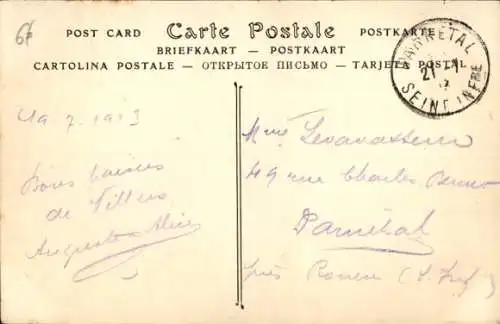 67
POST CARD Carte Postale POSTKARTE
BRIEFKAART — POSTKAART
CARTOLINA POSTALE — ОТКРЫТОЕ ПИСЬМО — TARJETA POSTAL
DARNETAL
21
SEINE INFRE
7. 1913
Bons baisers
de Villers
Auguste Alice
Mme Levavasseur
49 rue Charles
Darnétal
près Rouen (S. Inf)